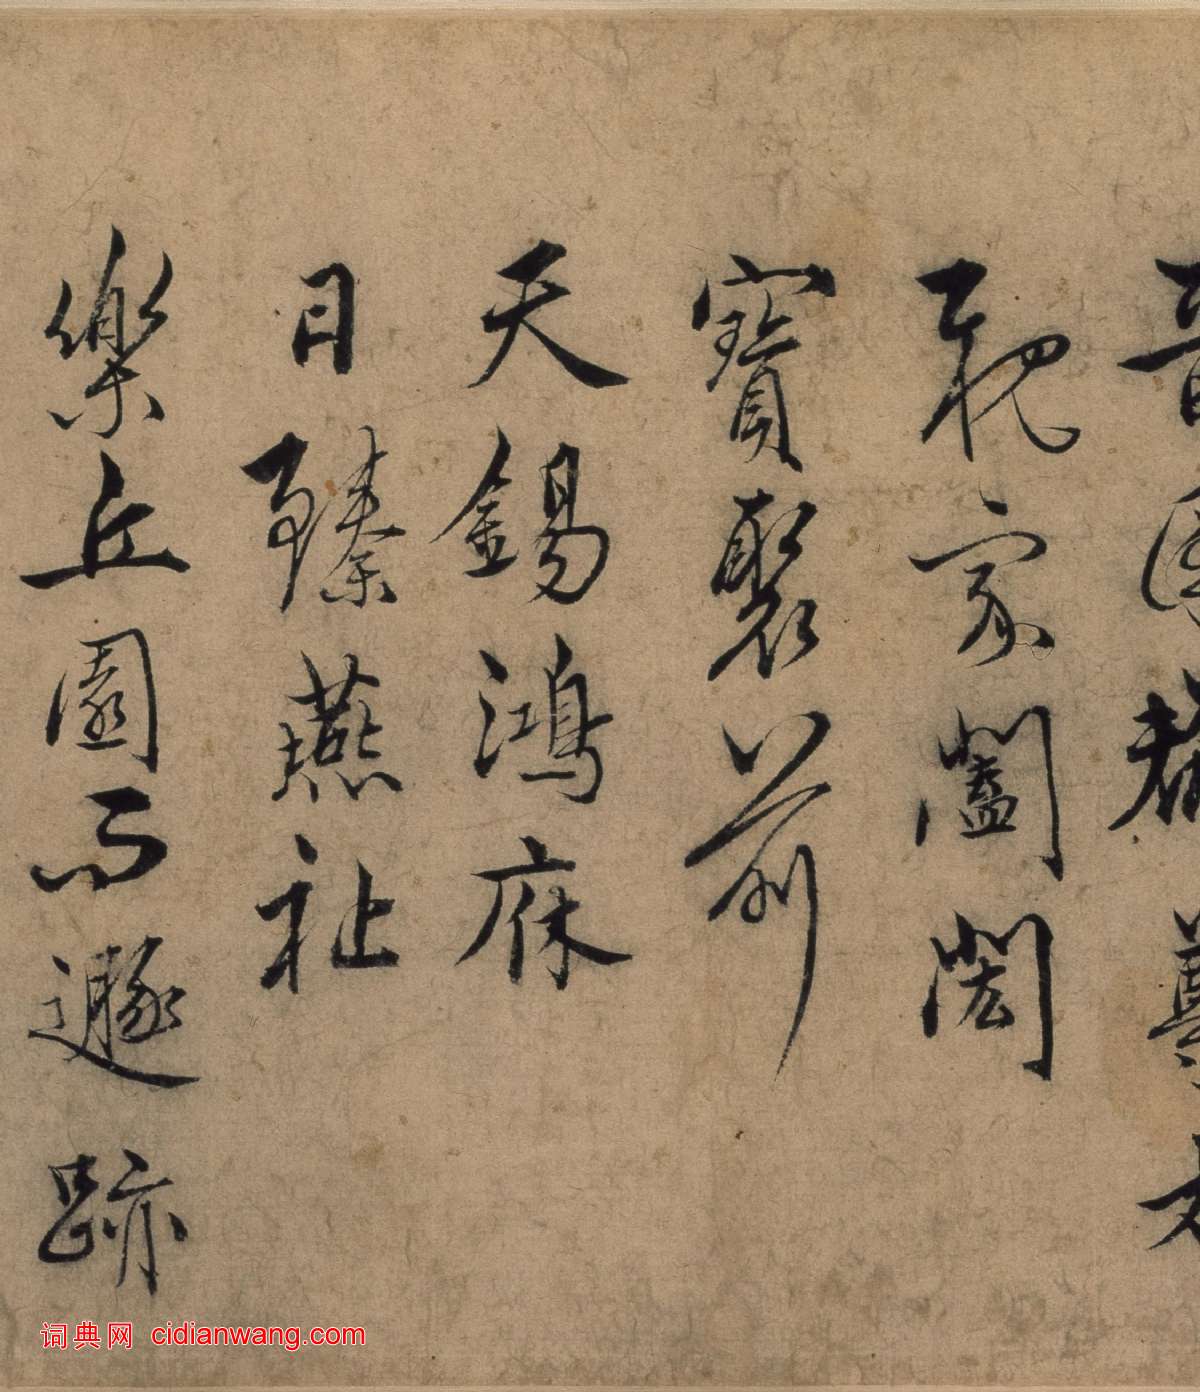 家闔閎
寶聚前
天錫鴻庥
日臻燕祉
樂丘園而遯跡
词典网 cidianwang.com